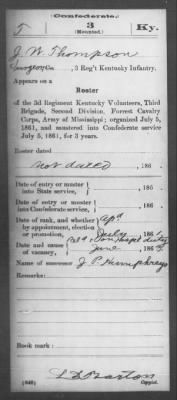 Confederate.
T 3 Ky.
(Mounted.)
J. W. Thompson
Surgeon, 3 Reg't Kentucky Infantry.
Appears on a
Roster
of the 3d Regiment Kentucky Volunteers, Third
Brigade, Second Division, Forrest Cavalry
Corps, Army of Mississippi; organized July 5,
1861, and mustered into Confederate service
July 5, 1861, for 3 years.
Roster dated
not dated, 186 .
Date of entry or muster
into State service, , 186 .
Date of entry or muster
into Confederate service, , 186 .
Date of rank, and whether Apd
by appointment, election
or promotion, July , 1861
Date and name Hospl duty
of vacancy, June , 1863
Name of successor J P Humphreys
Remarks:
Book mark:
(649) Copyist.